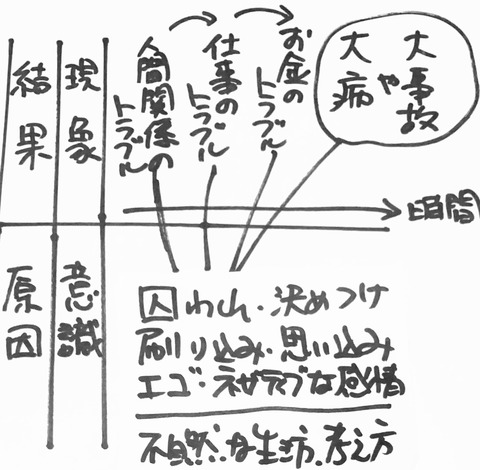 結果
現象
人間関係の
トラブル
仕事の
トラブル
お金の
トラブル
大事故
や
大病
時間
原因
意識
囚われ・決めつけ
刷り込み・思い込み
エゴ・ネガティブな感情
不自然な生き方、考え方